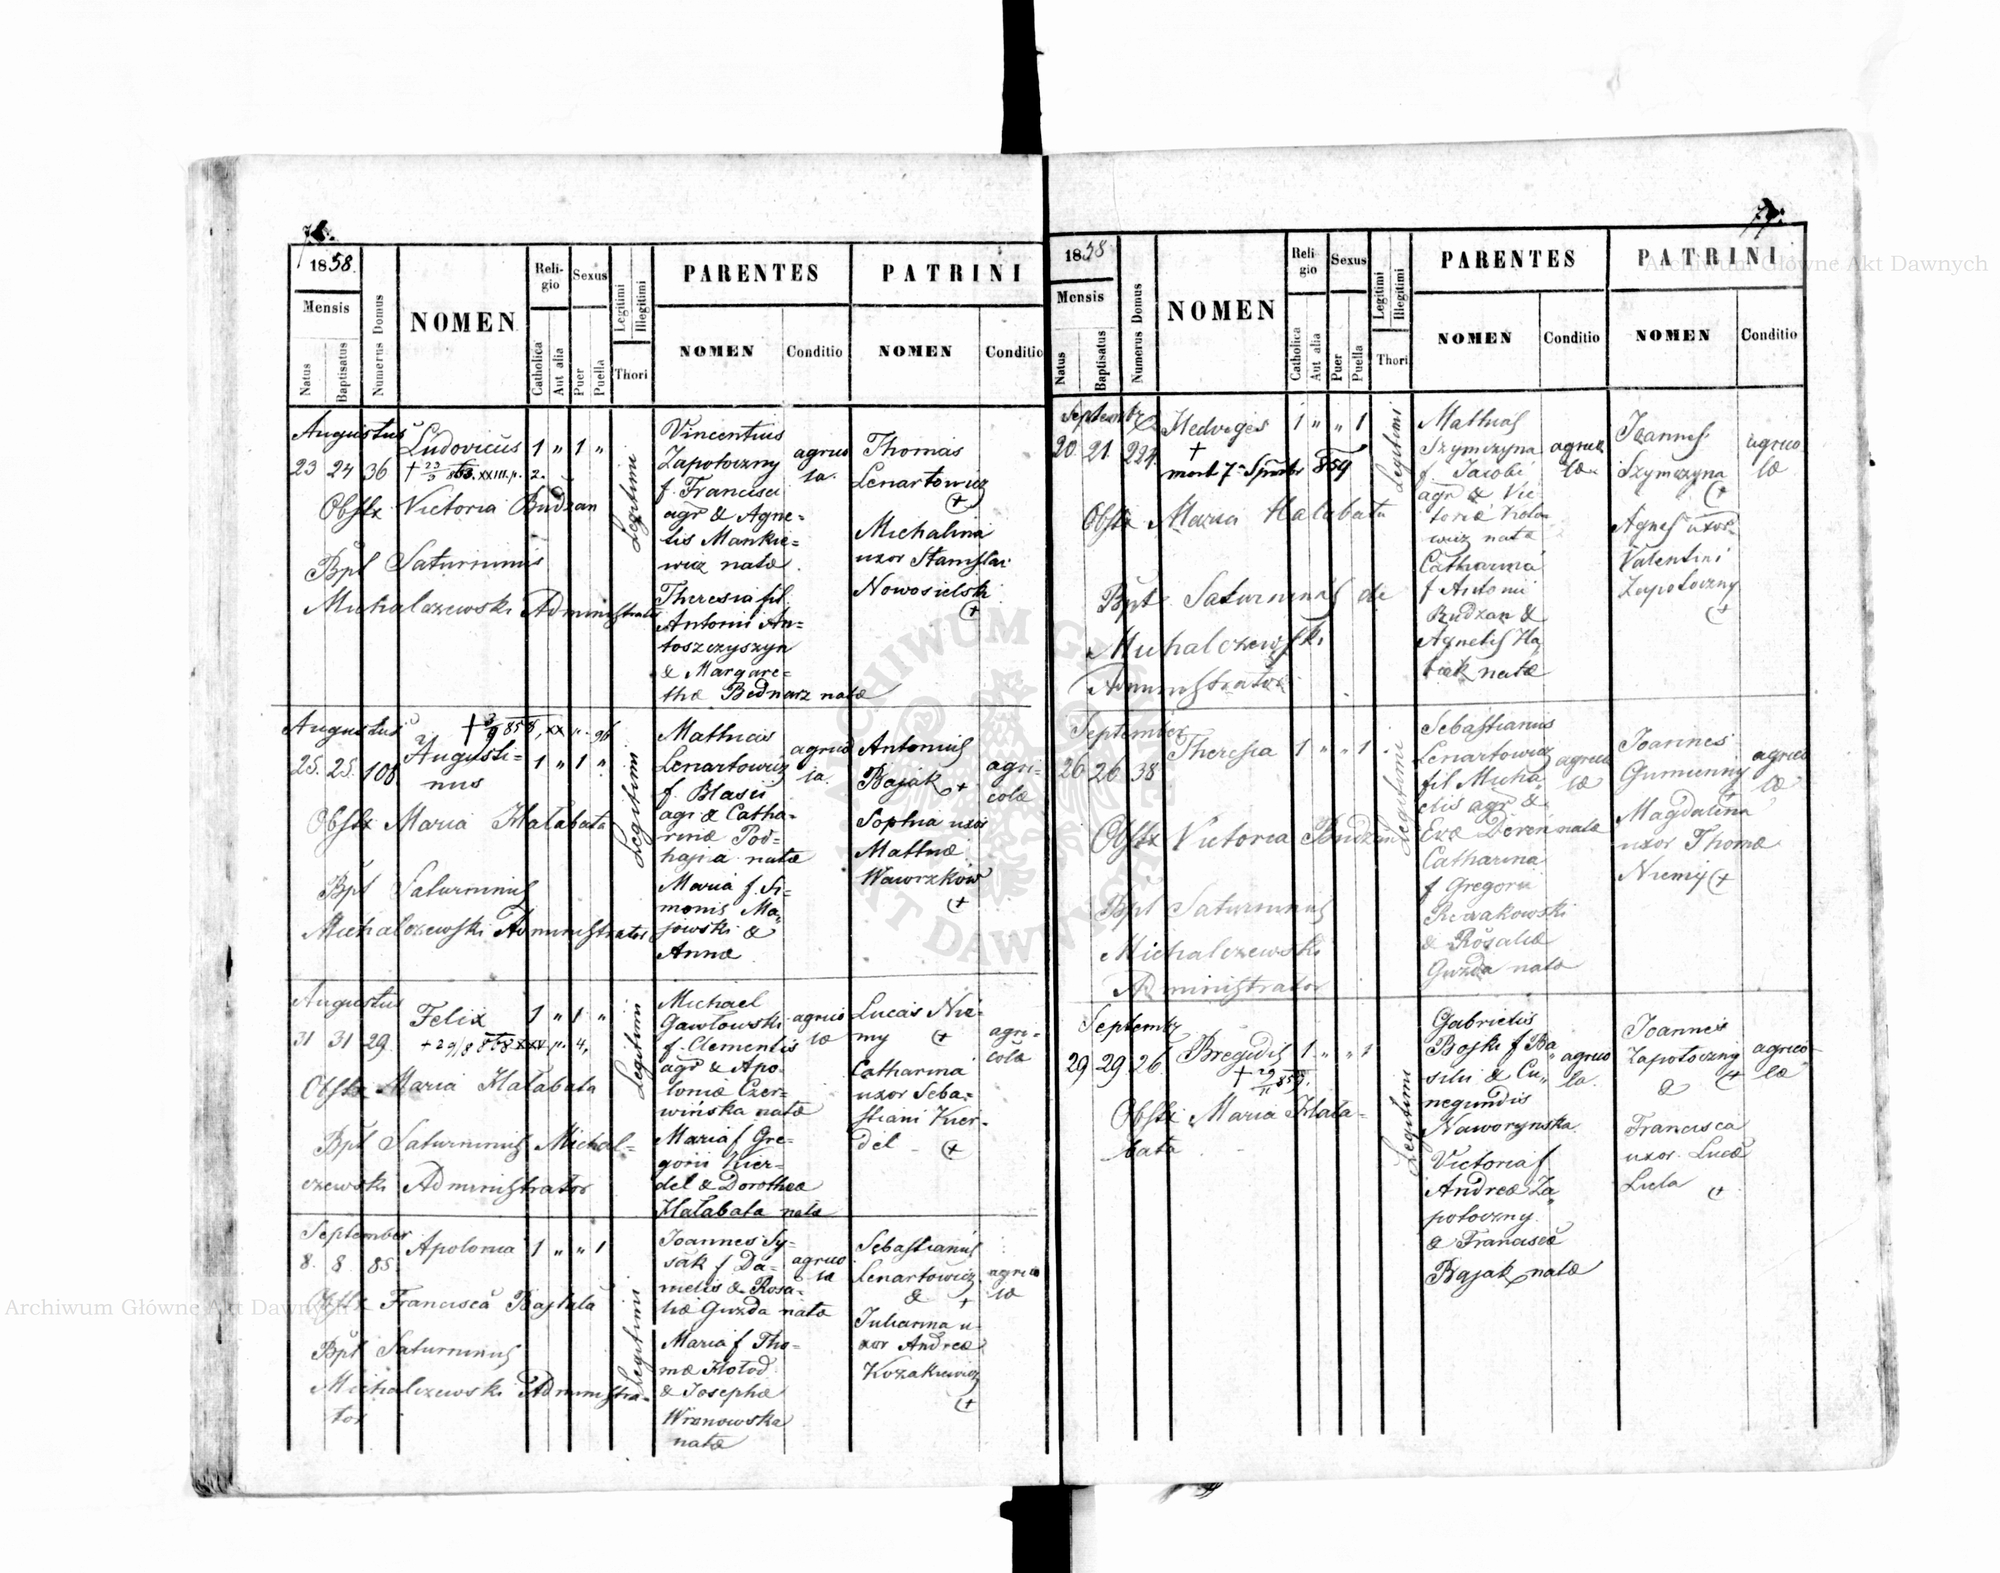 1858.
Mensis
Natus
Baptisatus
Numerus Domus
NOMEN
Religio
Catholica
Aut alia
Sexus
Puer
Puella
Legitimi
Illegitimi
Thori
PARENTES
NOMEN
Conditio
PATRINI
NOMEN
Conditio
Augustus
23 24 36 Ludovicus 1 " 1 "
Obstx Victoria Budzan
Bpt Saturninus
Michalczewski Administrator
Legitimi
Vincentius
Zapotoczny
f. Francisci
agr & Agne=
tis Mankie=
wicz natæ
Theresia fil.
Antonii An=
toszczyszyn
& Margare=
thæ Bednarz natæ
agrico
la.
Thomas
Lenartowicz
+
Michalina
uxor Stanislai
Nowosielski
+
Augustus
25. 25. 108. Augusti=
nus
1 " 1 "
Obstx Maria Hałabata
Bpt Saturninus
Michalczewski Administrator
Legitimi
Mathias
Lenartowicz
f Blasii
agr & Catha=
rinæ Pod=
hajna natæ
Maria f. Si=
monis Ma=
jowski &
Annæ
agrico
la.
Antonius
Bajak +
Sophia uxor
Mathiæ
Wawrzków
+
agri=
colæ
Augustus
31 31 29. Felix 1 " 1 "
Obstx Maria Hałabata
Bpt Saturninus Michal=
czewski Administrator
Legitimi
Michael
Gawłowski
f. Clementis
agr & Apo=
loniæ Czer=
wińska natæ
Maria f Gre=
gorii Kier=
del & Dorotheæ
Hałabata natæ
agrico
læ
Lucas Nie=
my +
Catharina
uxor Seba=
stiani Kier=
del +
agri=
cola
September
8. 8. 85. Apolonia 1 " " 1
Obstx Francisca Bajtała
Bpt Saturninus
Michalczewski Administra=
tor
Legitimi
Joannes Sy=
sak f Da=
nielis & Rosa=
liæ Gwzda natæ
Maria f Tho=
mæ Hołod
& Josephæ
Wronowska
natæ
agrico
la
Sebastianus
Lenartowicz
& +
Julianna u=
xor Andreæ
Kozakiewicz
+
agrico
læ
79.
1858
Mensis
Natus
Baptisatus
Numerus Domus
NOMEN
Religio
Catholica
Aut alia
Sexus
Puer
Puella
Legitimi
Illegitimi
Thori
PARENTES
NOMEN
Conditio
PATRINI
NOMEN
Conditio
Septembr
20. 21. 224. Hedvigis 1 " " 1
+
Obstx Maria Hałabata
Bpt Saturninus de
Michalczewski
Administrator
Legitimi
Mathias
Szymczyna
f Jacobi
agr & Vic
Catharina
f Antonii
Budzan &
Agnetis
natæ
agrico
læ
Joannes
Szymczyna
+
Agnes uxor
Valentini
Zapotoczny
+
agrico
læ
September
26 26 38 Theresia 1 " " 1
Obstx Victoria Budzan
Bpt Saturninus
Michalczewski
Administrator
Legitimi
Sebastianus
Lenartowicz
fil Micha
elis agr &
Evæ Deren natæ
Catharina
f Gregorii
& Rosaliæ
Gwzda natæ
agrico
læ
Joannes
Gumienny
Magdalena
uxor Thomæ
Niemy +
agrico
læ
Septembr
29 29 26. Bregidis 1 " " 1
Obstx Maria Hała=
bata
Legitimi
Gabrielis
Bojki f Ba
silii & Cu=
negundis
Naworynska
Victoria f
Andreæ Za
potoczny
& Franciscæ
Bajak natæ
agrico
la.
Joannes
Zapotoczny
& +
Francisca
uxor Lucæ
+
agrico=
læ
Archiwum Główne Akt Dawnych
Archiwum Główne Akt Dawnych
ARCHIWUM GŁÓWNE AKT DAWNYCH